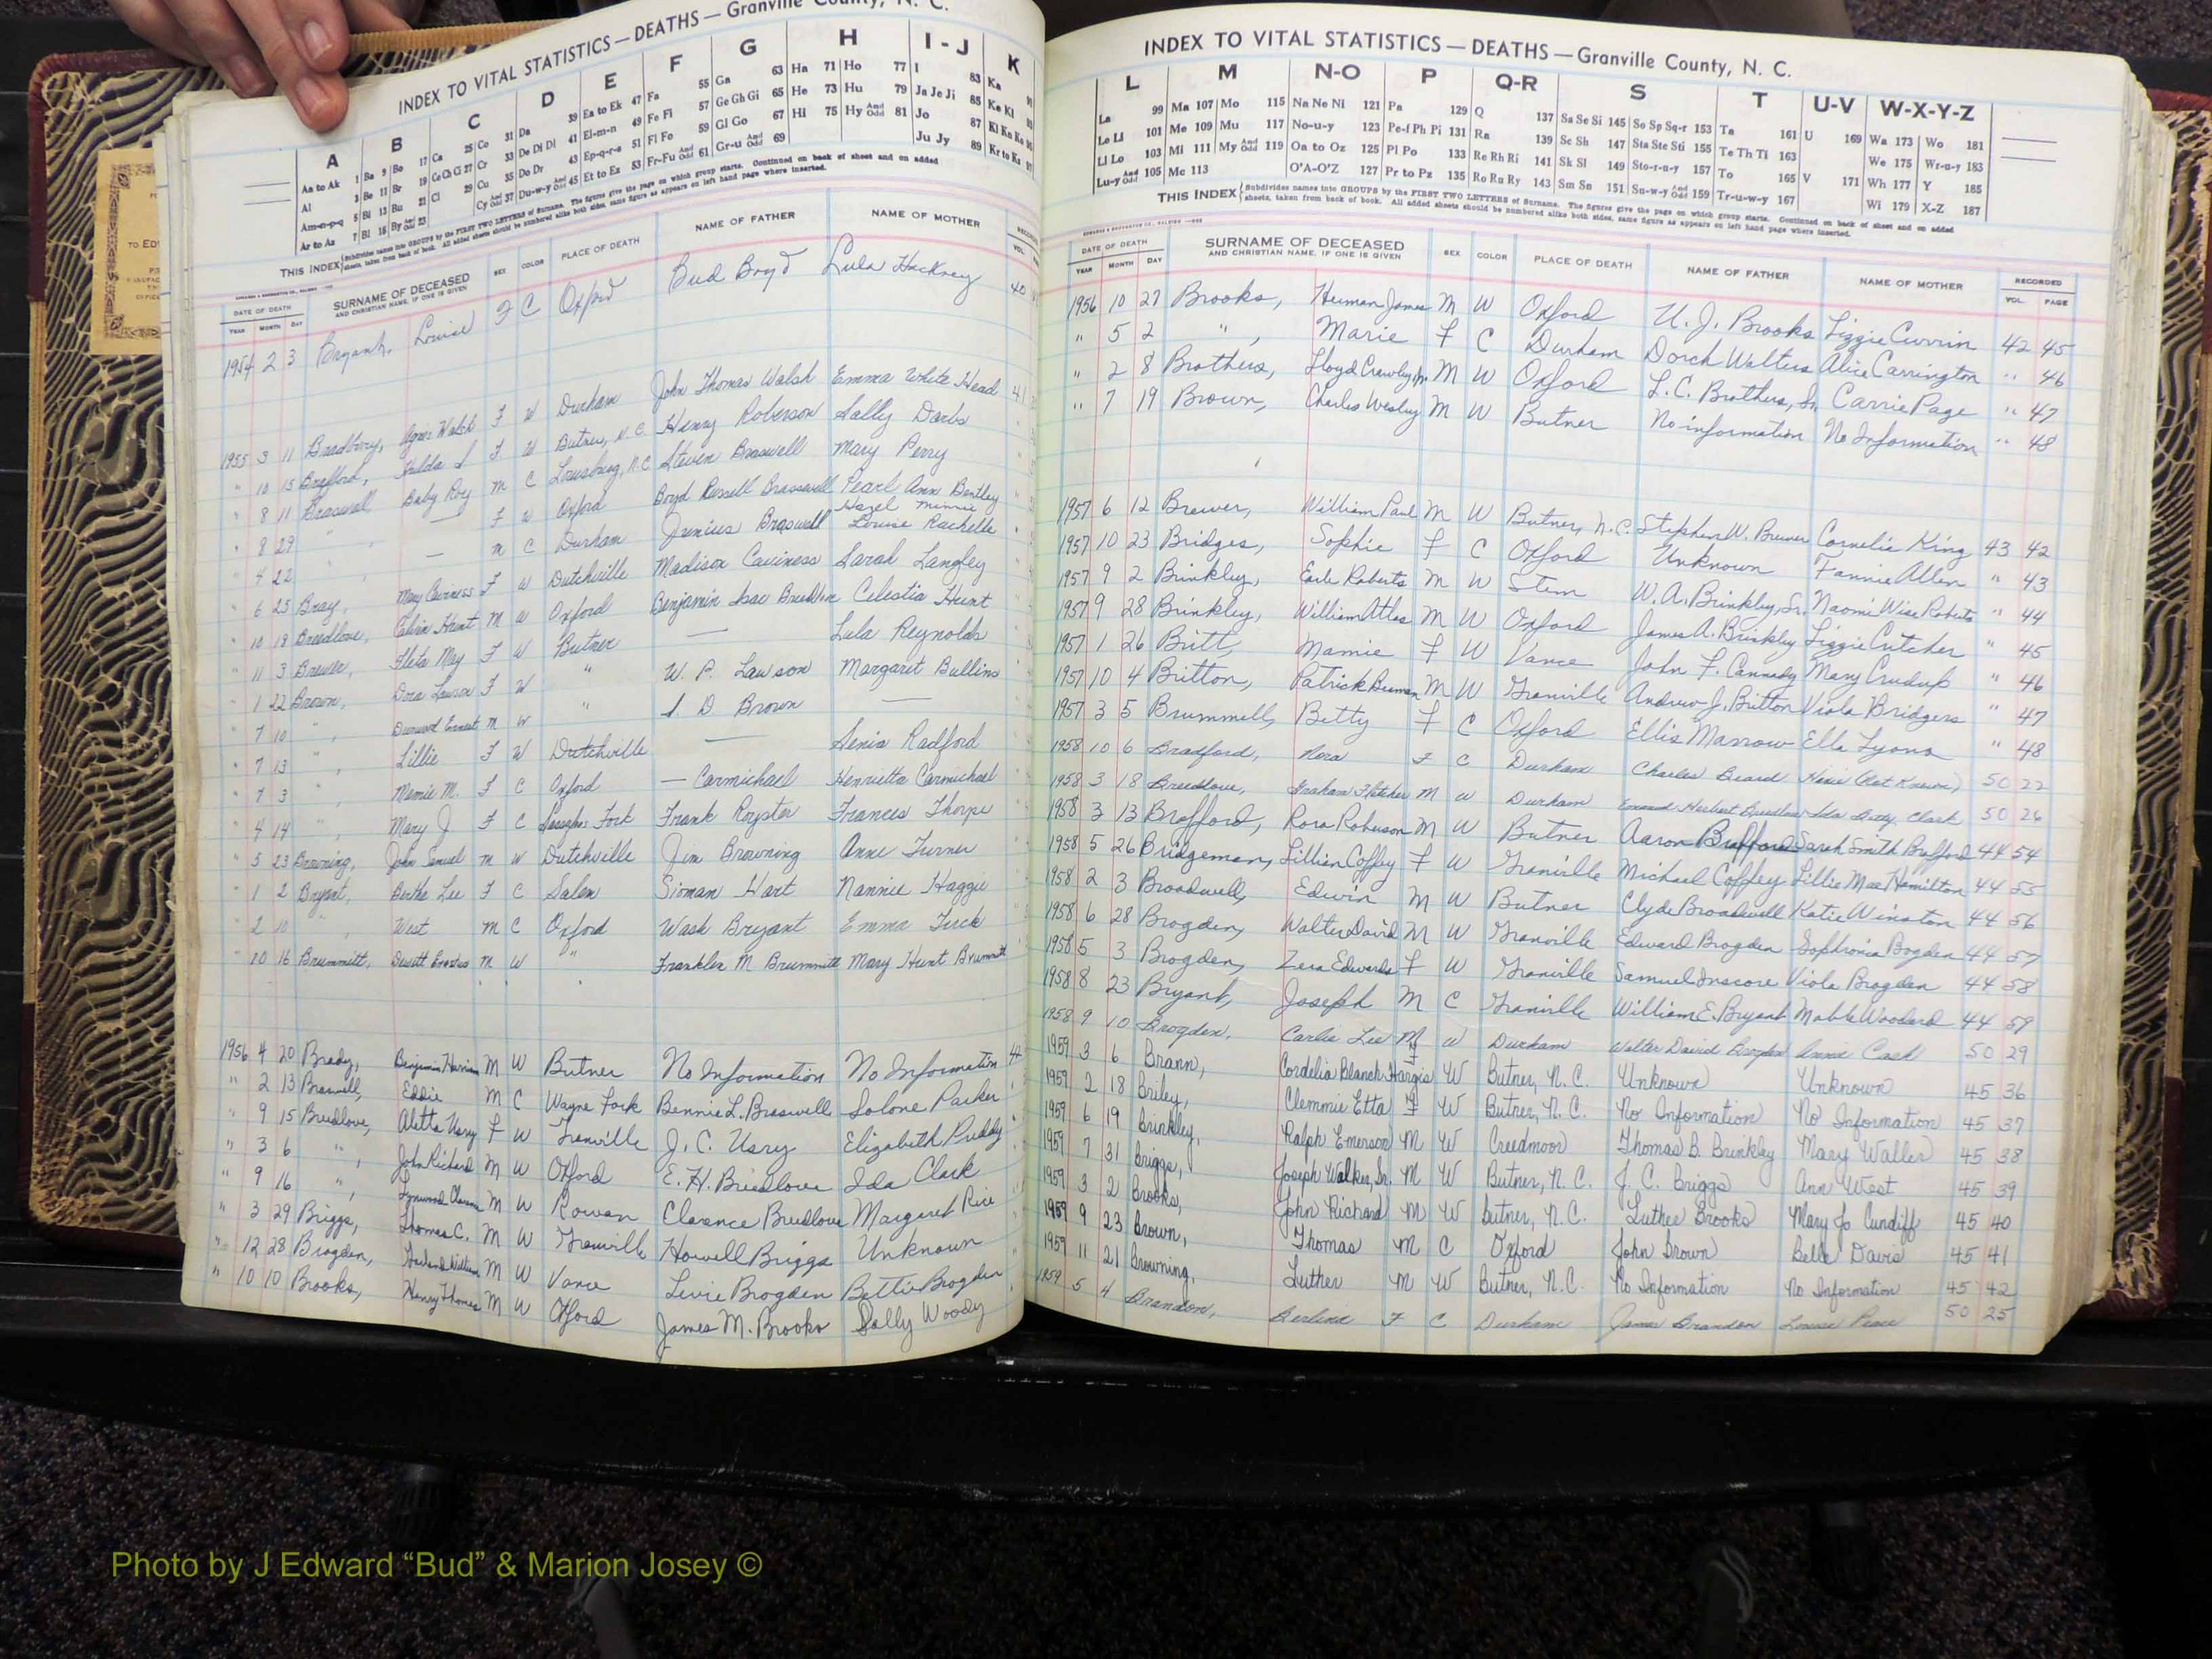 INDEX TO VITAL STATISTICS — DEATHS — Granville County, N. C.
A B C D E F G H I - J K
Aa to Ak 1 Ba 9 Bo 17 Ca 25 Co 31 Da 39 Ea to Ek 47 Fa 55 Ga 63 Ha 71 Ho 77 I 83 Ka
Al 3 Be 11 Br 19 Ce Ch Ci 27 Cr 33 De Di Dl 41 El-m-n 49 Fe Fi 57 Ge Gh Gi 65 He 73 Hu 79 Ja Je Ji 85 Ke Kl
Am-n-p-q 5 Bi 13 Bu 21 Cl 29 Cu 35 Do Dr 43 Ep-q-r-s 51 Fl Fo 59 Gl Go 67 Hi 75 Hy And Odd 81 Jo 87
Ar to Az 7 Bl 15 By And Odd 23 Cy And Odd 37 Du-w-y And Odd 45 Et to Ez 53 Fr-Fu And Odd 61 Gr-u And Odd 69 Ju Jy 89 Kr to Ky
THIS INDEX Subdivides names into GROUPS by the FIRST TWO LETTERS of Surname. The figures give the page on which group starts. Continued on back of sheet and on added
sheets, taken from back of book. All added sheets should be numbered alike both sides, same figure as appears on left hand page where inserted.
DATE OF DEATH SURNAME OF DECEASED SEX COLOR PLACE OF DEATH NAME OF FATHER NAME OF MOTHER
YEAR MONTH DAY AND CHRISTIAN NAME, IF ONE IS GIVEN VOL.
1954 2 3 Bryant, Louise F C Oxford Bud Boyd Lula Hackney 40
1955 3 11 Bradbury, Agnes Walsh F W Durham John Thomas Walsh Emma White Head 41
" 10 15 Brafford, Hulda S F W Butner, N.C. Henry Roberson Sally Darbs
" 8 11 Braswell Baby Roy M C Louisburg, N.C. Steven Braswell Mary Perry
" 8 29 " , — F W Oxford Boyd Russell Brasswell Pearl Ann Bentley
" 4 22 " , — M C Durham Junius Braswell Hazel Minnie Louise Rachelle
" 6 25 Bray, Mary Caviness F W Dutchville Madison Caviness Sarah Langley
" 10 18 Breedlove, Calvin Hunt M W Oxford Benjamin Isac Breedlove Celestia Hunt
" 11 3 Brewer, Fleta May F W Butner — Lula Reynolds
" 1 22 Brown, Dora Lawson F W " W. P. Lawson Margaret Bullins
" 7 10 " , Durwood Ernest M W " S. D Brown —
" 7 13 " , Lillie F W Dutchville — Senia Radford
" 7 3 " , Mamie M. F C Oxford — Carmichael Henrietta Carmichael
" 4 14 " , Mary J F C Sassafras Fork Frank Royster Frances Thorpe
" 5 23 Browning, John Samuel M W Dutchville Jim Browning Anne Turner
" 1 2 Bryant, Bertha Lee F C Salem Sioman Hart Nannie Haggie
" 2 10 " , West M C Oxford Wash Bryant Emma Tuck
" 10 16 Brummitt, Dewitt M W " Franklin M Brummitt Mary Hunt Brummitt
1956 4 20 Brady, Benjamin M W Butner No Information No Information
" 2 13 Braswell, Eddie M C Wayne Fork Bennie L. Braswell Solone Parker
" 9 15 Breedlove, Aletta Usry F W Granville J. C. Usry Elizabeth Puddy
" 3 6 " , John Richard M W Oxford E. H. Breedlove Ida Clark
" 9 16 " , M W Rowan Clarence Breedlove Margaret Rice
" 3 29 Briggs, Thomas C. M W Granville Howell Briggs Unknown
" 12 28 Brogden, M W Vance Levie Brogden Bettie Brogden
" 10 10 Brooks, Henry Thomas M W Oxford James M. Brooks Sally Woody
INDEX TO VITAL STATISTICS — DEATHS — Granville County, N. C.
L M N-O P Q-R S T U-V W-X-Y-Z
La 99 Ma 107 Mo 115 Na Ne Ni 121 Pa 129 Q 137 Sa Se Si 145 So Sp Sq-r 153 Ta 161 U 169 Wa 173 Wo 181
Le Ll 101 Me 109 Mu 117 No-u-y 123 Pe-f Ph Pi 131 Ra 139 Sc Sh 147 Sta Ste Sti 155 Te Th Ti 163 We 175 Wr-u-y 183
Li Lo 103 Mi 111 My And Odd 119 Oa to Oz 125 Pl Po 133 Re Rh Ri 141 Sk Sl 149 Sto-r-u-y 157 To 165 V 171 Wh 177 Y 185
Lu-y And Odd 105 Mc 113 O'A-O'Z 127 Pr to Pz 135 Ro Ru Ry 143 Sm Sn 151 Su-w-y And Odd 159 Tr-u-w-y 167 Wi 179 X-Z 187
THIS INDEX Subdivides names into GROUPS by the FIRST TWO LETTERS of Surname. The figures give the page on which group starts. Continued on back of sheet and on added
sheets, taken from back of book. All added sheets should be numbered alike both sides, same figure as appears on left hand page where inserted.
DATE OF DEATH SURNAME OF DECEASED SEX COLOR PLACE OF DEATH NAME OF FATHER NAME OF MOTHER RECORDED
YEAR MONTH DAY AND CHRISTIAN NAME, IF ONE IS GIVEN VOL. PAGE
1956 10 27 Brooks, Herman James M W Oxford U. J. Brooks Lizzie Currin 42 45
" 5 2 " , Marie F C Durham Dorch Walters Alice Carrington " 46
" 2 8 Brothers, Lloyd Crawley, Jr. M W Oxford L. C. Brothers, Sr. Carrie Page " 47
" 7 19 Brown, Charles Wesley M W Butner No information No Information " 48
1957 6 12 Brewer, William Paul M W Butner, N.C. Stephen W. Brewer Cornelia King 43 42
1957 10 23 Bridges, Sophie F C Oxford Unknown Fannie Allen " 43
1957 9 2 Brinkley, Earle Roberts M W Stem W. A. Brinkley, Sr. Naomi Wise Roberts " 44
1957 9 28 Brinkley, William Atlas M W Oxford James A. Brinkley Lizzie Critcher " 45
1957 1 26 Britt, Mamie F W Vance John F. Cannady Mary Crudup " 46
1957 10 4 Britton, Patrick Beaman M W Granville Andrew J. Britton Viola Bridgers " 47
1957 3 5 Brummell, Betty F C Oxford Ellis Marrow Ella Lyons " 48
1958 10 6 Bradford, Nora F C Durham Charles Beard (Not Known) 50 22
1958 3 18 Breedlove, Graham Fletcher M W Durham Herbert Breedlove Ida Betty Clark 50 26
1958 3 13 Brafford, Rora Roberson M W Butner Aaron Brafford Sarah Smith Brafford 44 54
1958 5 26 Bridgeman, Lillian Coffey F W Granville Michael Coffey Lillie Mae Hamilton 44 55
1958 2 3 Broadwell, Edwin M W Butner Clyde Broadwell Katie Winston 44 56
1958 6 28 Brogden, Walter David M W Granville Edward Brogden Sophronia Bogden 44 57
1958 5 3 Brogden, Zera Edwards F W Granville Samuel Inscore Viola Brogden 44 58
1958 8 23 Bryant, Joseph M C Granville William E. Bryant Mable Woodard 44 59
1958 9 10 Brogden, Carlie Lee M W Durham Walter David Brogden Annie Cash 50 29
1959 3 6 Brann, Cordelia Blanch Hargis F W Butner, N.C. Unknown Unknown 45 36
1959 2 18 Briley, Clemmie Etta F W Butner, N.C. No Information No Information 45 37
1959 6 19 Brinkley, Ralph Emerson M W Creedmoor Thomas B. Brinkley Mary Waller 45 38
1959 7 31 Briggs, Joseph Walker, Sr. M W Butner, N.C. J. C. Briggs Ann West 45 39
1959 3 2 Brooks, John Richard M W Butner, N.C. Luther Brooks Mary Jo Cundiff 45 40
1959 9 23 Brown, Thomas M C Oxford John Brown Belle Davis 45 41
1959 11 21 Browning, Luther M W Butner, N.C. No Information No Information 45 42
1959 5 4 Brandon, Berline F C Durham James Brandon Louise Peace 50 25
Photo by J Edward “Bud” & Marion Josey ©